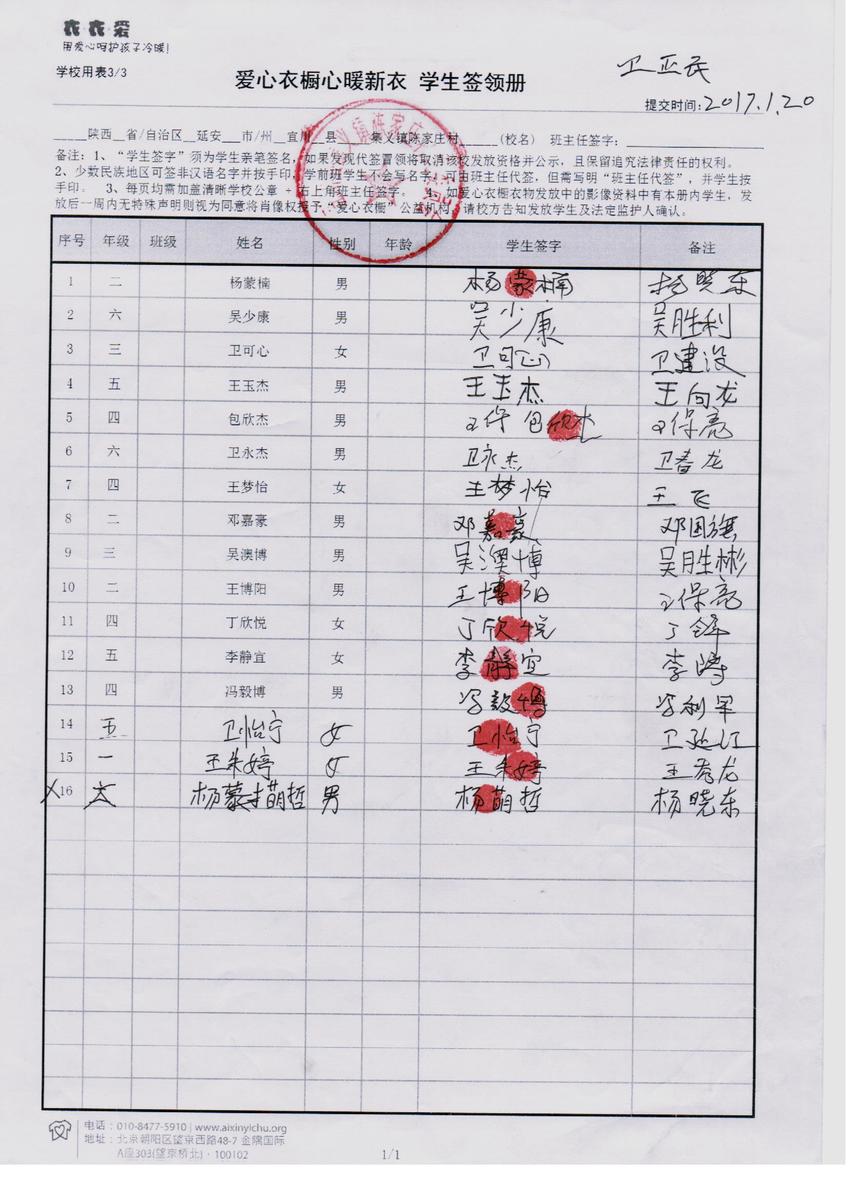 衣衣爱
用爱心呵护孩子冷暖!
学校用表3/3
卫亚民
爱心衣橱心暖新衣 学生签领册
提交时间:2017.1.20
陕西__省/自治区__延安___市/州__宜川__县____集义镇陈家庄村______(校名) 班主任签字:
备注:1、“学生签字”须为学生亲笔签名,如果发现代签冒领将取消该校发放资格并公示,且保留追究法律责任的权利。
2、少数民族地区可签非汉语名字并按手印,学前班学生不会写名字,可由班主任代签,但需写明“班主任代签”,并学生按
手印。 3、每页均需加盖清晰学校公章 + 右上角班主任签字。 4、如爱心衣橱衣物发放中的影像资料中有本册内学生,发
放后一周内无特殊声明则视为同意将肖像权授予“爱心衣橱”公益机构,请校方告知发放学生及法定监护人确认。
序号 年级 班级 姓名 性别 年龄 学生签字 备注
1 二 杨蒙楠 男 杨蒙楠 杨晓东
2 六 吴少康 男 吴少康 吴胜利
3 三 卫可心 女 卫可心 卫建设
4 五 王玉杰 男 王玉杰 王向龙
5 四 包欣杰 男 包欣杰 王保亮
6 六 卫永杰 男 卫永杰 卫春龙
7 四 王梦怡 女 王梦怡 王飞
8 二 邓嘉豪 男 邓嘉豪 邓国旗
9 三 吴澳博 男 吴澳博 吴胜彬
10 二 王博阳 男 王博阳 王保亮
11 四 丁欣悦 女 丁欣悦 丁
12 五 李静宜 女 李静宜 李涛
13 四 冯毅博 男 冯毅博 冯利军
14 五 卫怡宁 女 卫怡宁 卫延江
15 一 王朱婷 女 王朱婷 王秀龙
16 六 杨萌哲 男 杨萌哲 杨晓东
电话:010-8477-5910 | www.aixinyichu.org
地址:北京朝阳区望京西路48-7 金隅国际
A座303(望京桥北)·100102
1/1